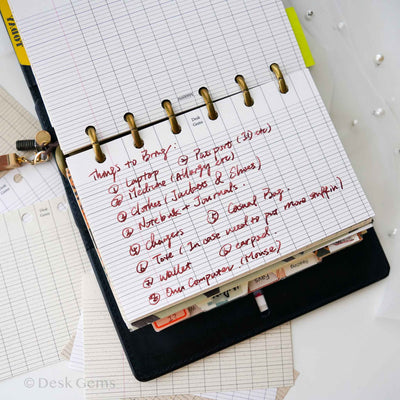 TODAY
Desk
Gems
Things to Bring:
① Laptop ② Passports (ID etc)
③ Medicine (Allergy etc)
④ Clothes (Jackets & Shoes)
⑤ Notebook + Journals.
⑥ Chargers ⑦ Casual Bag.
Tote (In case need to put more stuff in)
Wallet earpod
Own Computer (Mouse)
© Desk Gems